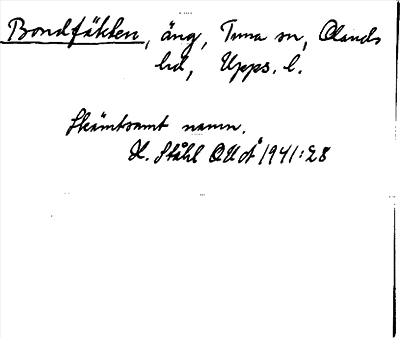 Bondfäkten, äng, Tuna sn, Olands
hd, Upps. l.
Skämtsamt namn.
H. Ståhl OUÅ 1941:28